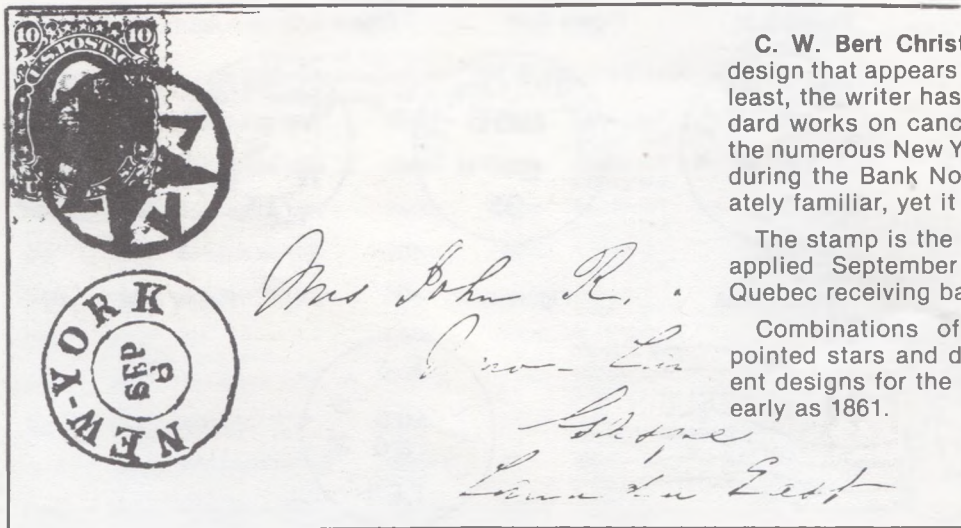 10 U.S. POSTAGE 10
NEW-YORK
SEP
Mrs John R.
Gaspe
Canada East
C. W. Bert Christ
design that appears
least, the writer has
dard works on canc
the numerous New Y
during the Bank No
ately familiar, yet it
The stamp is the
applied September
Quebec receiving ba
Combinations of
pointed stars and d
ent designs for the
early as 1861.